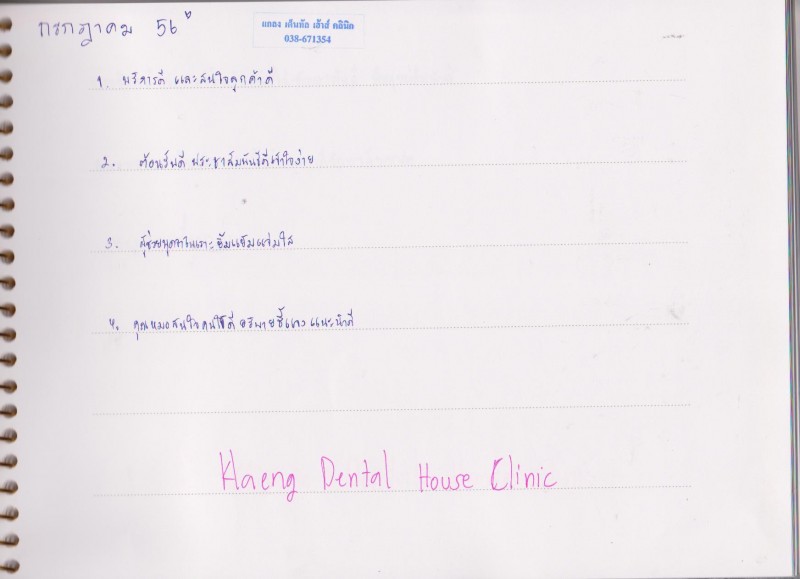 กรกฎาคม 56
แกลง เด็นทัล เฮ้าส์ คลินิค
038-671354
1. บริการดี และสนใจลูกค้าดี
2. ต้อนรับดี ประชาสัมพันธ์ดีเข้าใจง่าย
3. ผู้ช่วยพูดจาไพเราะ ยิ้มแย้มแจ่มใส
4. คุณหมอสนใจคนไข้ดี อธิบายชี้แจง แนะนำดี
Klaeng Dental House Clinic